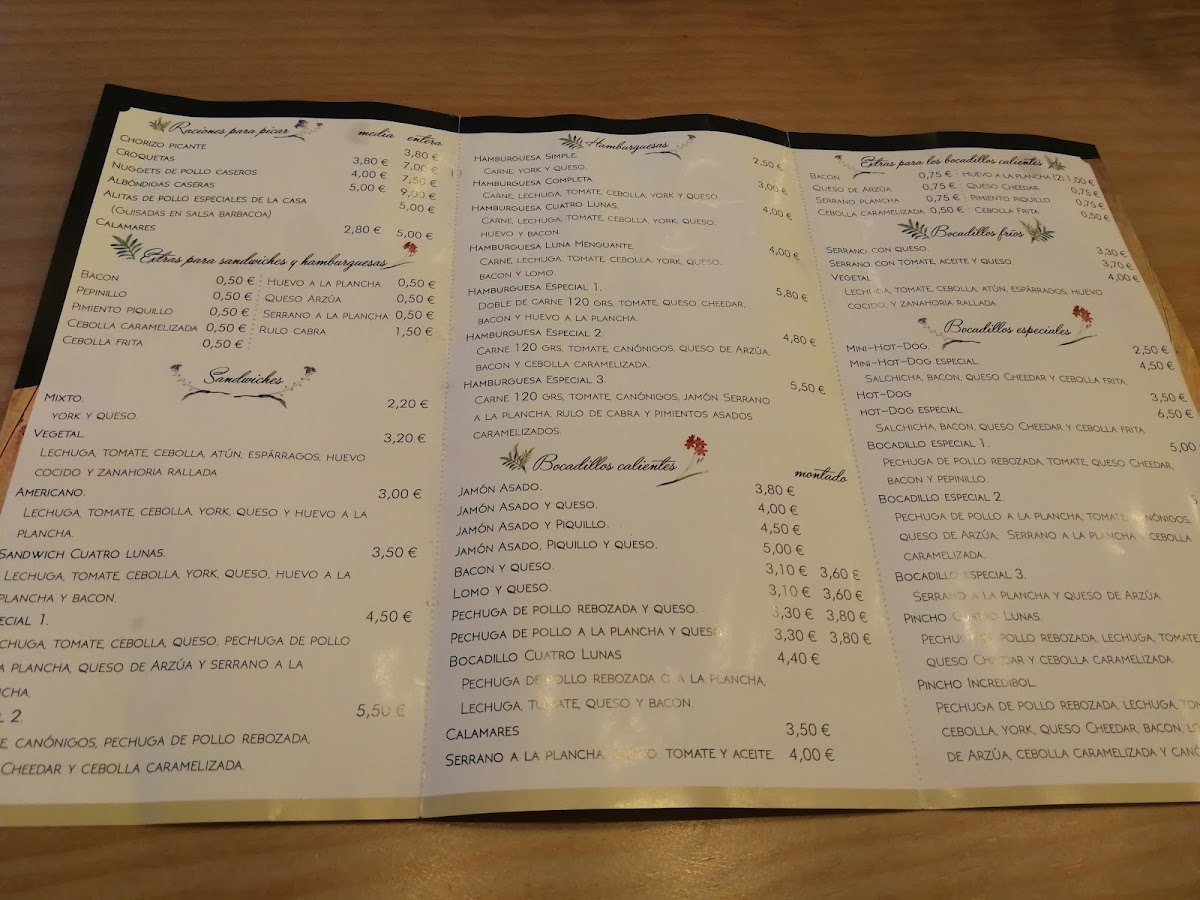 Raciones para picar media entera
Chorizo picante 3,80 €
Croquetas 3,80 € 7,00 €
Nuggets de pollo caseros 4,00 € 7,50 €
Albóndigas caseras 5,00 € 9,00 €
Alitas de pollo especiales de la casa 5,00 €
(Guisadas en salsa barbacoa)
Calamares 2,80 € 5,00 €
Extras para sandwiches y hamburguesas
Bacon 0,50 € Huevo a la plancha 0,50 €
Pepinillo 0,50 € Queso Arzúa 0,50 €
Pimiento piquillo 0,50 € Serrano a la plancha 0,50 €
Cebolla caramelizada 0,50 € Rulo cabra 1,50 €
Cebolla frita 0,50 €
Sandwiches
Mixto. 2,20 €
York y queso.
Vegetal. 3,20 €
Lechuga, tomate, cebolla, atún, espárragos, huevo
cocido y zanahoria rallada
Americano. 3,00 €
Lechuga, tomate, cebolla, york, queso y huevo a la
plancha.
Sandwich Cuatro lunas. 3,50 €
Lechuga, tomate, cebolla, york, queso, huevo a la
plancha y bacon.
ecial 1. 4,50 €
chuga, tomate, cebolla, queso, pechuga de pollo
a plancha, queso de Arzúa y serrano a la
cha.
l 2. 5,50 €
e, canónigos, pechuga de pollo rebozada,
Cheedar y cebolla caramelizada.
Hamburguesas
Hamburguesa Simple. 2,50 €
Carne york y queso.
Hamburguesa Completa 3,00 €
Carne, lechuga, tomate, cebolla, york y queso.
Hamburguesa Cuatro Lunas. 4,00 €
Carne, lechuga, tomate, cebolla, york, queso,
huevo y bacon.
Hamburguesa Luna Menguante. 4,00 €
Carne, lechuga, tomate, cebolla, york, queso,
bacon y lomo.
Hamburguesa Especial 1. 5,80 €
Doble de carne 120 grs, tomate, queso cheedar,
bacon y huevo a la plancha.
Hamburguesa Especial 2. 4,80 €
Carne 120 grs, tomate, canónigos, queso de Arzúa,
bacon y cebolla caramelizada.
Hamburguesa Especial 3. 5,50 €
Carne 120 grs, tomate, canónigos, jamón Serrano
a la plancha, rulo de cabra y pimientos asados
caramelizados.
Bocadillos calientes montado
Jamón Asado. 3,80 €
Jamón Asado y queso. 4,00 €
Jamón Asado y Piquillo. 4,50 €
Jamón Asado, Piquillo y queso. 5,00 €
Bacon y queso. 3,10 € 3,60 €
Lomo y queso. 3,10 € 3,60 €
Pechuga de pollo rebozada y queso. 3,30 € 3,80 €
Pechuga de pollo a la plancha y queso 3,30 € 3,80 €
Bocadillo Cuatro Lunas 4,40 €
Pechuga de pollo rebozada o a la plancha,
Lechuga, tomate, queso y bacon.
Calamares 3,50 €
Serrano a la plancha, queso, tomate y aceite. 4,00 €
Extras para los bocadillos calientes
Bacon 0,75 € Huevo a la plancha (2) 1,00 €
Queso de Arzúa 0,75 € Queso Cheedar 0,75 €
Serrano plancha 0,75 € Pimiento piquillo 0,75 €
Cebolla caramelizada 0,50 € Cebolla frita 0,50 €
Bocadillos fríos
Serrano con queso. 3,30 €
Serrano con tomate, aceite y queso. 3,70 €
Vegetal 4,00 €
Lechuga, tomate, cebolla, atún, espárragos, huevo
cocido, y zanahoria rallada.
Bocadillos especiales
Mini-Hot-Dog. 2,50 €
Mini-Hot-Dog especial. 4,50 €
Salchicha, bacon, queso Cheedar y cebolla frita.
Hot-Dog 3,50 €
Hot-Dog especial 6,50 €
Salchicha, bacon, queso Cheedar y cebolla frita
Bocadillo especial 1. 5,00
Pechuga de pollo rebozada, tomate, queso Cheedar,
bacon y pepinillo.
Bocadillo especial 2.
Pechuga de pollo a la plancha, tomate, canónigos,
queso de Arzúa, Serrano a la plancha y cebolla
caramelizada.
Bocadillo especial 3.
Serrano a la plancha y queso de Arzúa.
Pincho Cuatro Lunas.
Pechuga de pollo rebozada, lechuga, tomate
queso Cheedar y cebolla caramelizada.
Pincho Incredibol.
Pechuga de pollo rebozada, lechuga, tom
cebolla, york, queso Cheedar, bacon, lo
de Arzúa, cebolla caramelizada y canó